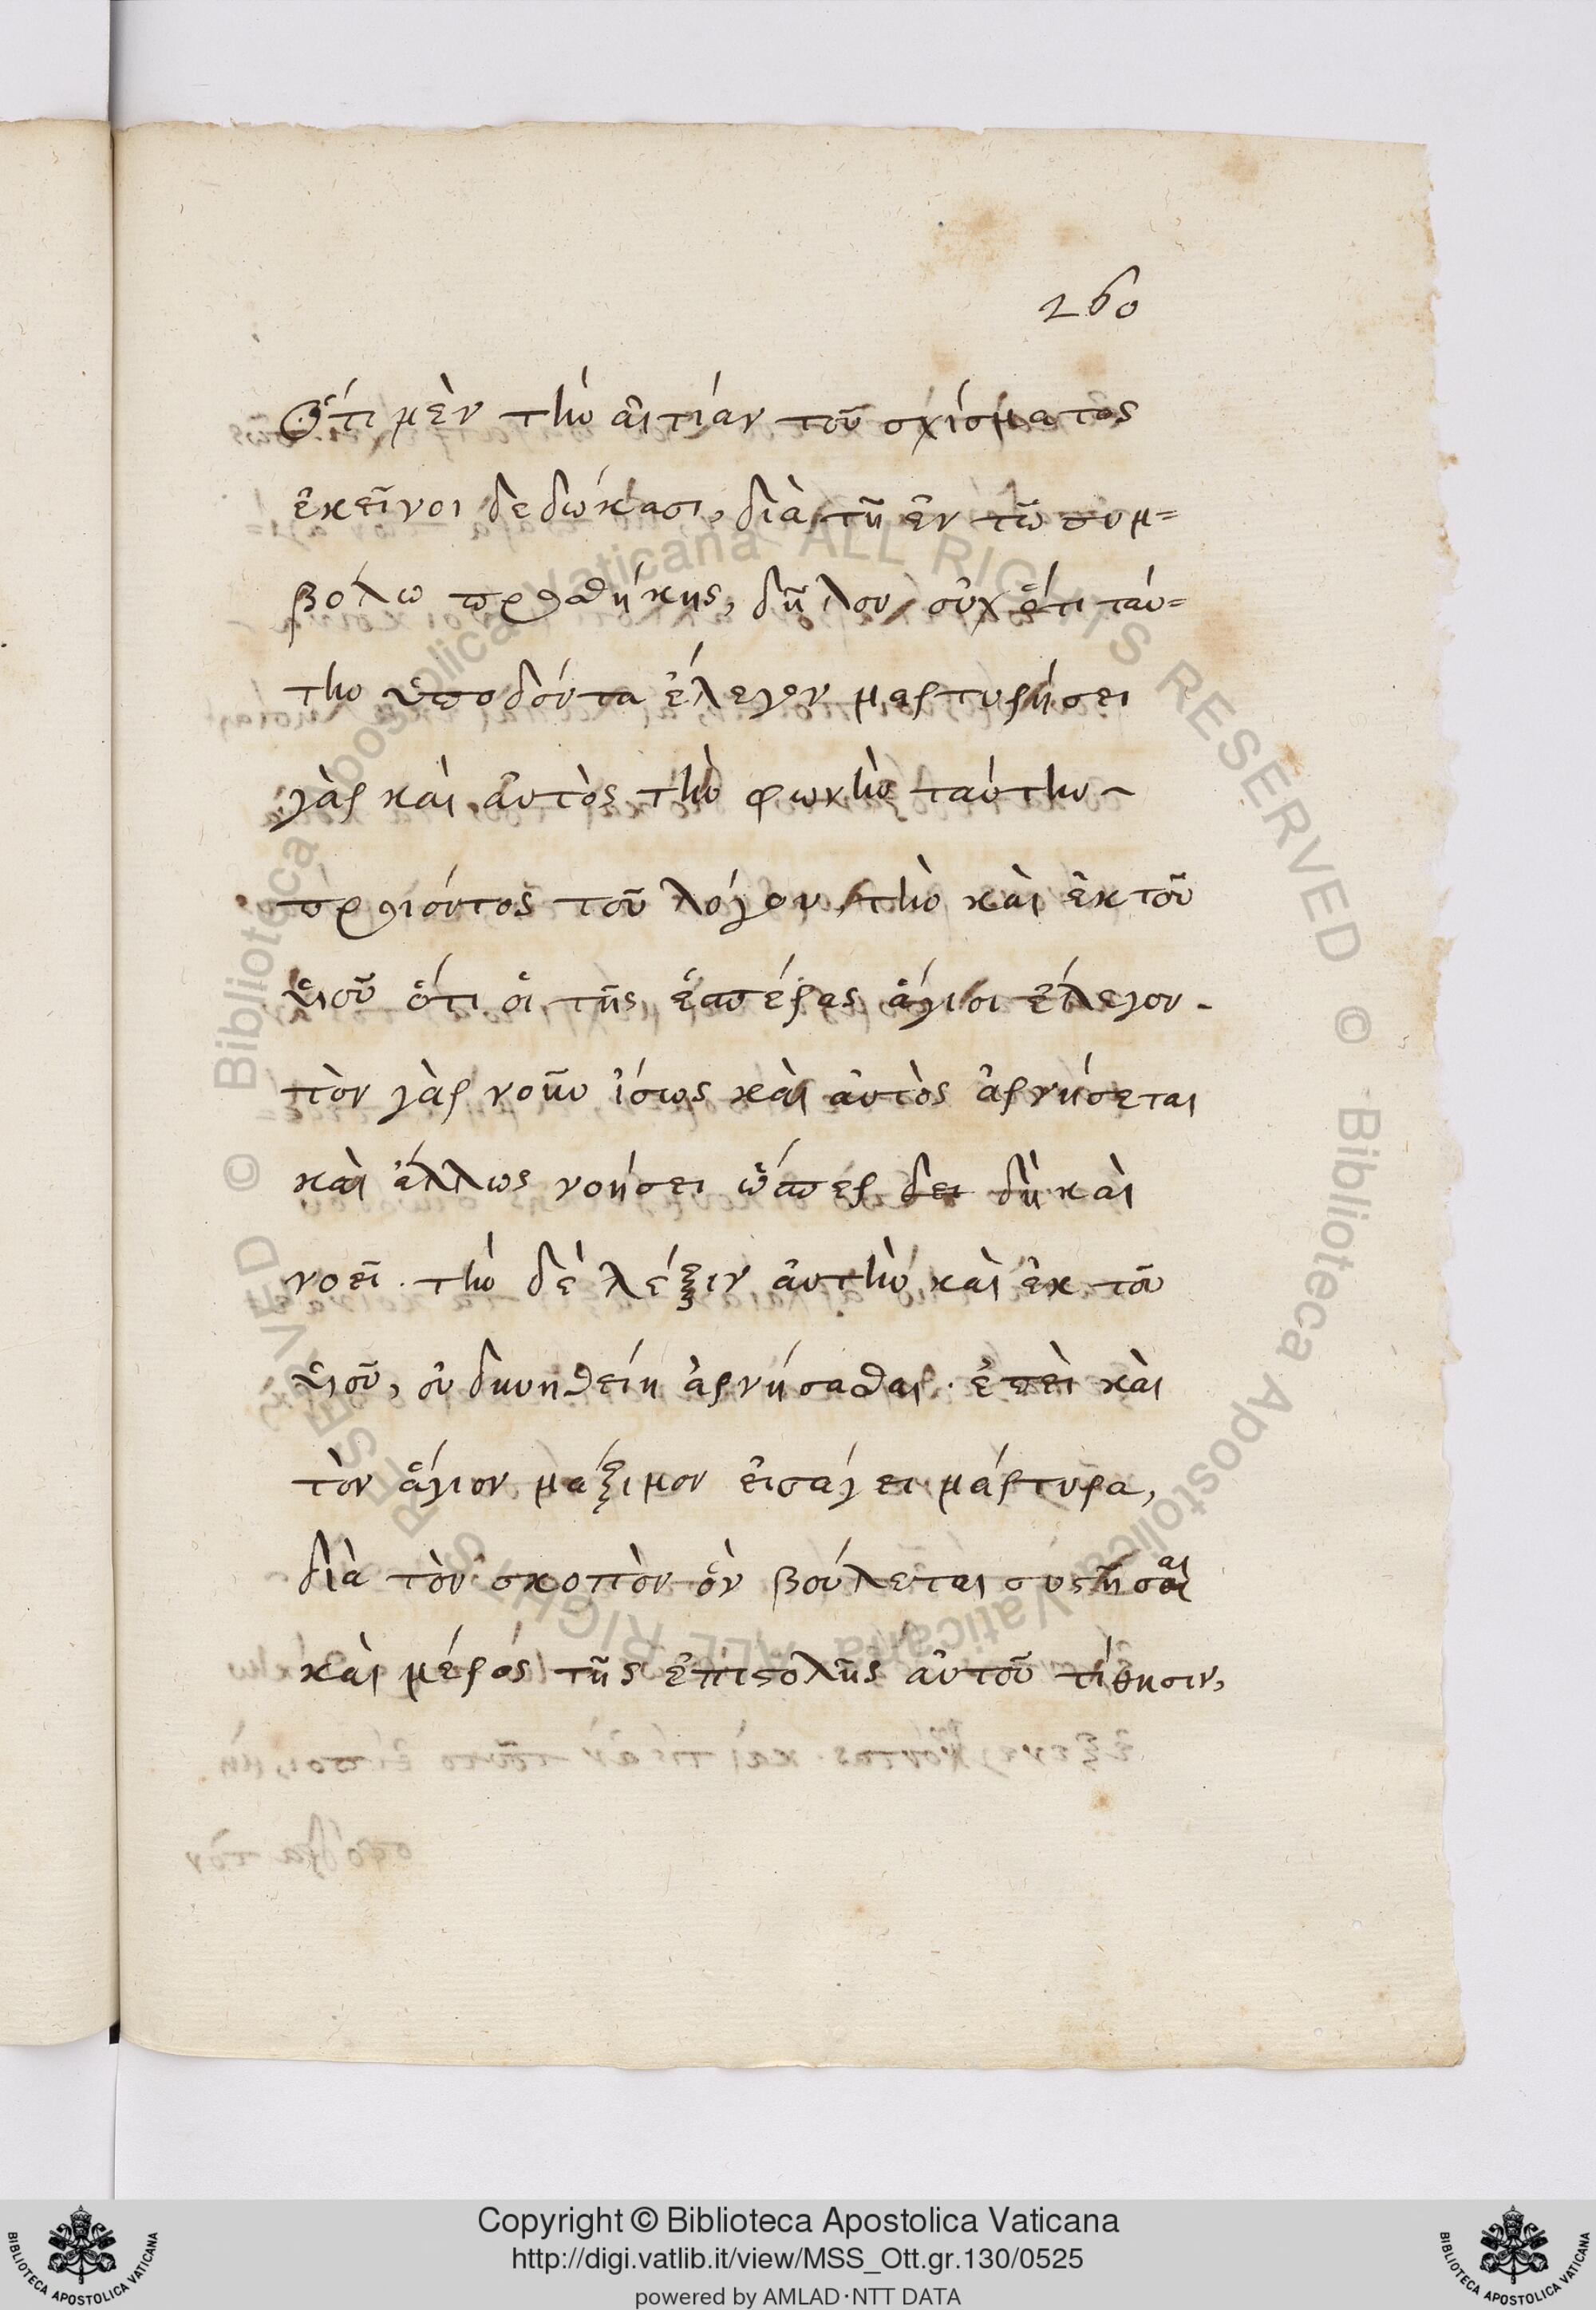 260
Ὅτι μὲν τὴν αἰτίαν τοῦ σχίσματος
ἐκεῖνοι δεδώκασι, διὰ τῆ ἐν τῶ συμ=
βόλω προσθήκης, δῆλον, οὐχ ὅτι ταύ=
την ὑποδόντα ἔλεγεν μαρτυρήσει
γὰρ καὶ αὐτὸς τὴν φωνὴν ταύτην
προϊόντος τοῦ λόγου, τὴν καὶ ἐκ τοῦ
υἱοῦ ὅτι οἱ τῆς ἑσπέρας ἅγιοι ἔλεγον.
τὸν γὰρ νοῦν ἴσως καὶ αὐτὸς ἀρνήσεται
καὶ ἄλλως νοήσει ὥσπερ δει δὴ καὶ
νοεῖ. τὴν δὲ λέξιν αὐτὴν καὶ ἐκ τοῦ
υἱοῦ, οὐ δυνηθείη ἀρνήσασθαι. ἐπεὶ καὶ
τὸν ἅγιον μάξιμον εἰσάγει μάρτυρα,
διὰ τὸν σκοπὸν ὃν βούλεται συστῆσαι
καὶ μέρος τῆς ἐπιστολῆς αὐτοῦ τίθησιν,
© Biblioteca Apostolica Vaticana ALL RIGHTS RESERVED © Biblioteca Apostolica Vaticana ALL RIGHTS RESERVED
Copyright © Biblioteca Apostolica Vaticana
http://digi.vatlib.it/view/MSS_Ott.gr.130/0525
powered by AMLAD·NTT DATA
BIBLIOTECA APOSTOLICA VATICANA
BIBLIOTECA APOSTOLICA VATICANA